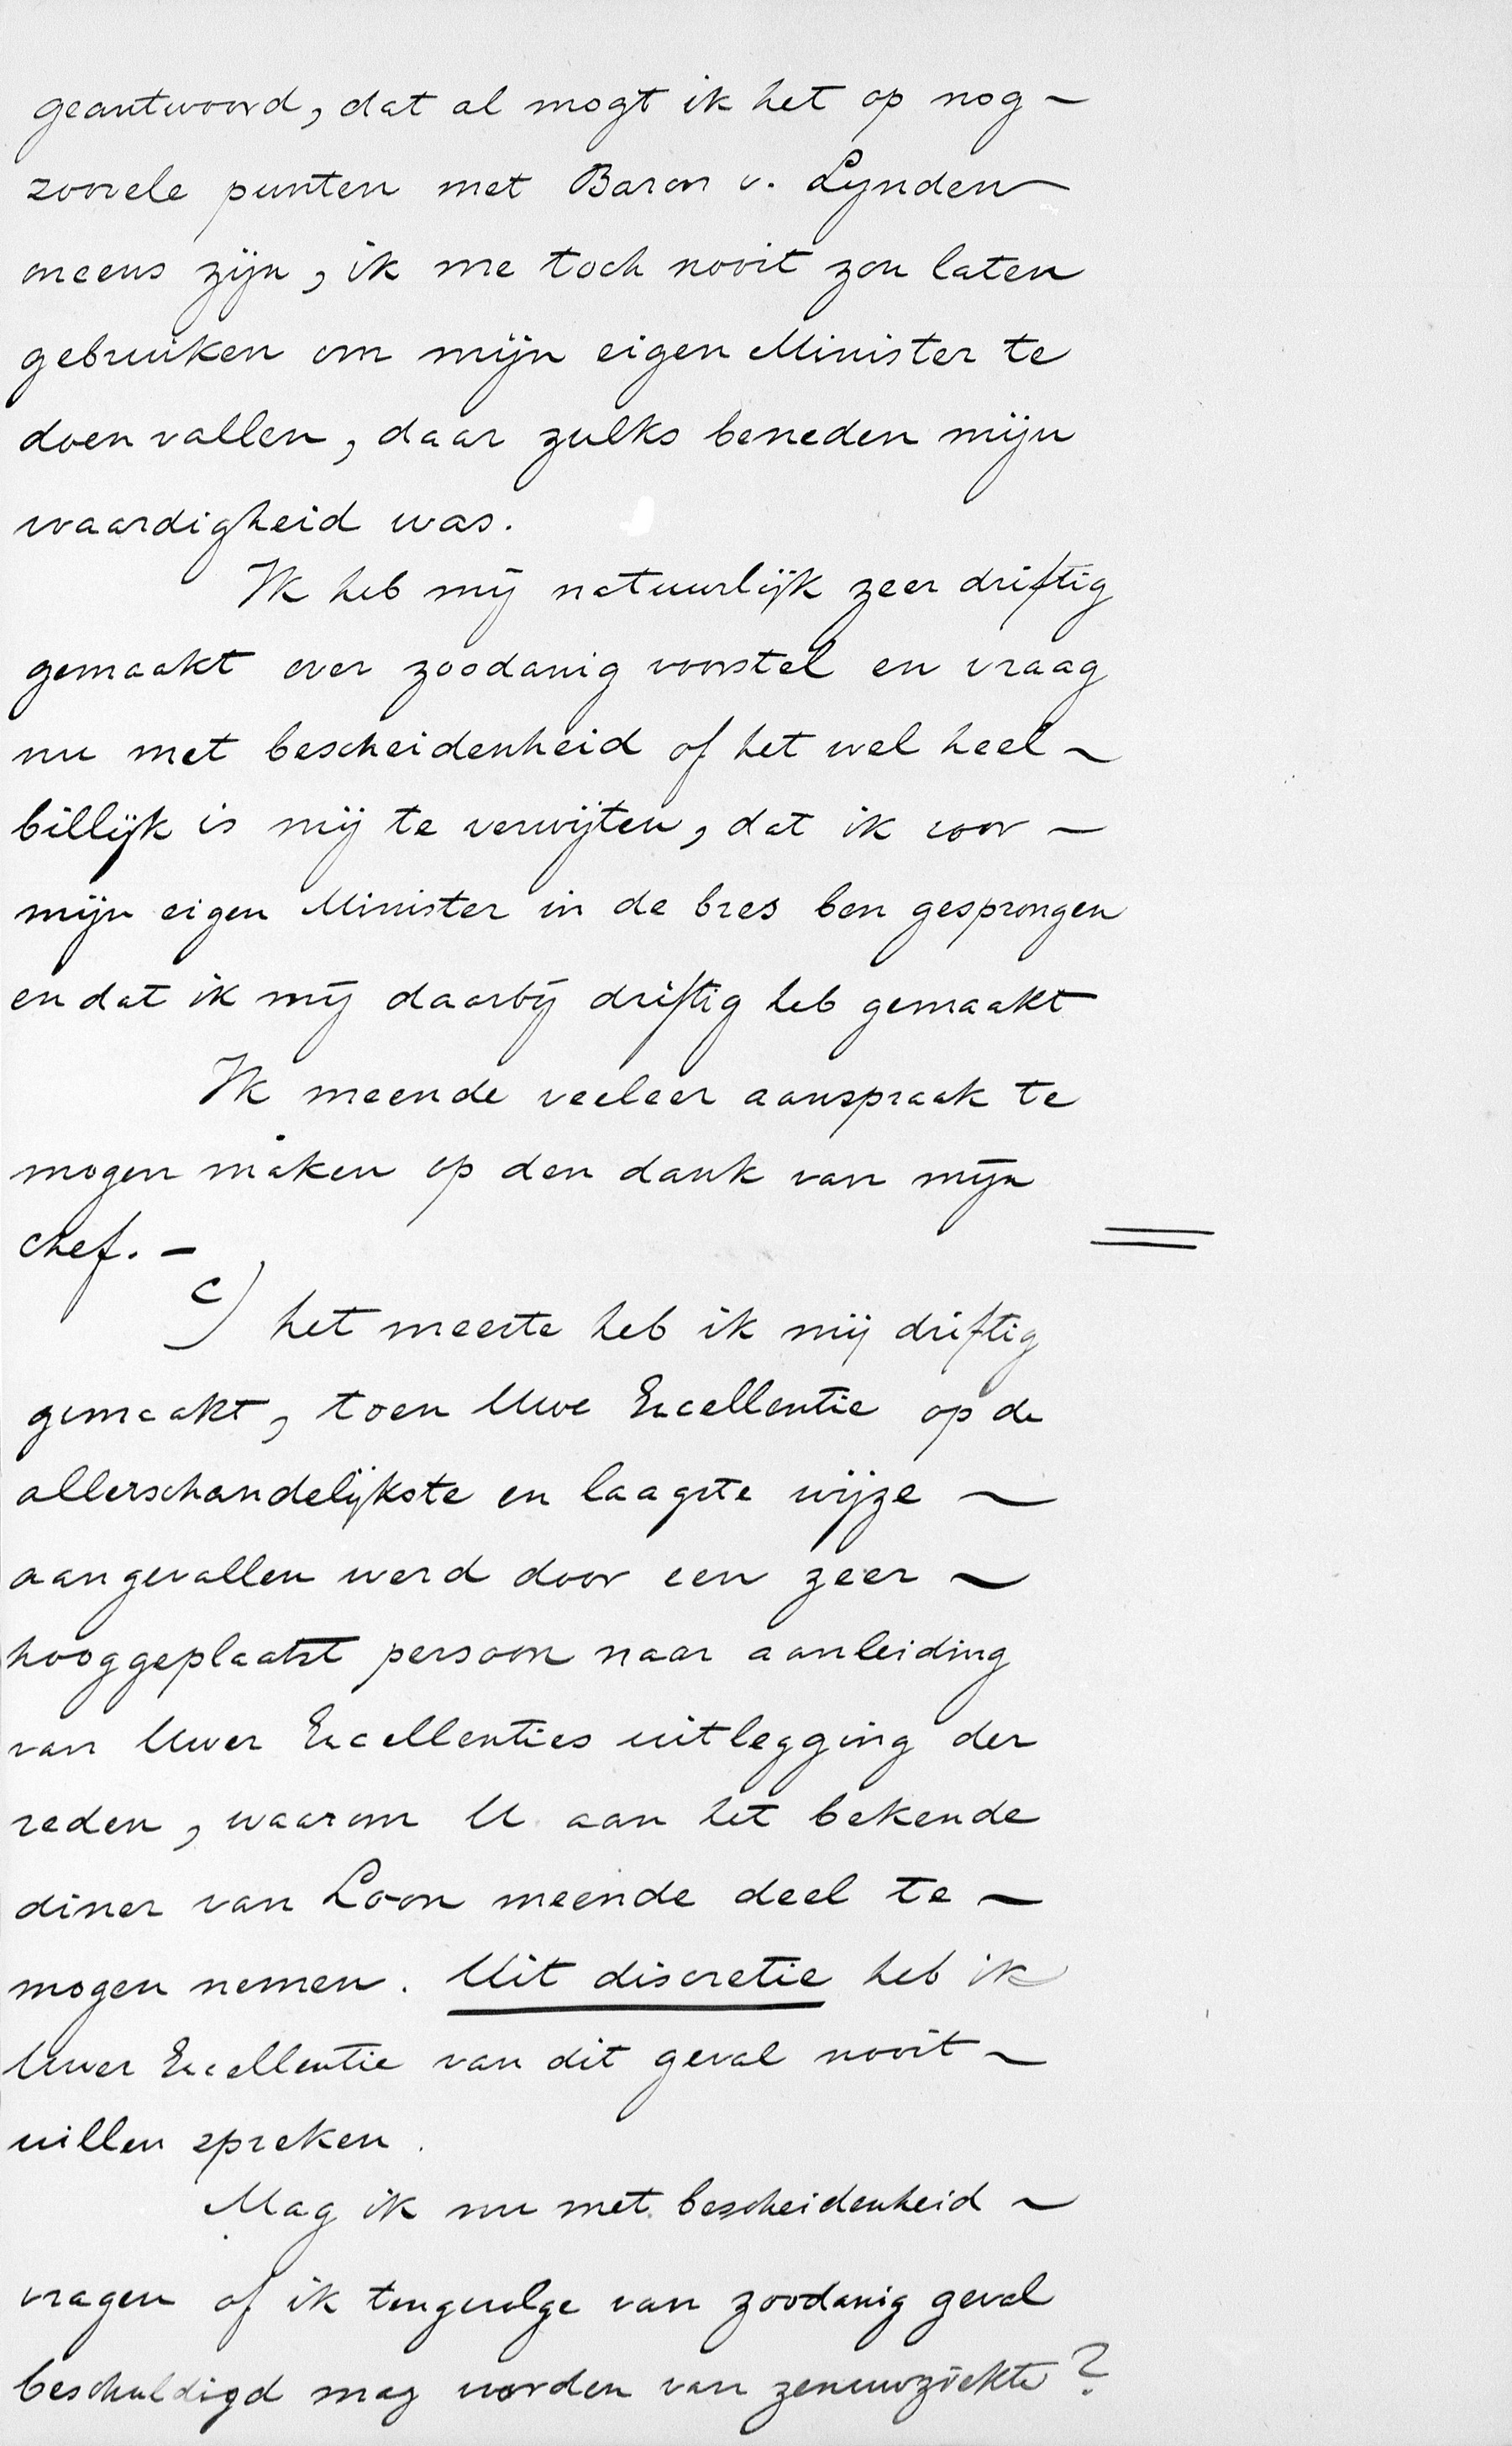 geantwoord, dat al mogt ik het op nog –
zoovele punten met Baron v. Lynden
oneens zijn, ik me toch nooit zou laten
gebruiken om mijn eigen Minister te
doen vallen, daar zulks beneden mijn
waardigheid was.
Ik heb mij natuurlijk zeer driftig
gemaakt over zoodanig voorstel en vraag
nu met bescheidenheid of het wel heel –
billijk is mij te verwijten, dat ik voor –
mijn eigen Minister in de bres ben gesprongen
en dat ik mij daarbij driftig heb gemaakt
Ik meende veeleer aanspraak te
mogen maken op den dank van mijn
chef. –
c) het meeste heb ik mij driftig
gemaakt, toen Uwe Excellentie op de
allerschandelijkste en laagste wijze –
aangevallen werd door een zeer –
hooggeplaatst persoon naar aanleiding
van Uwer Excellenties uitlegging der
reden, waarom U aan het bekende
diner van Loon meende deel te –
mogen nemen. Uit discretie heb ik
Uwer Excellentie van dit geval nooit –
willen spreken.
Mag ik nu met bescheidenheid –
vragen of ik tengevolge van zoodanig geval
beschuldigd mag worden van zenuwziekte?